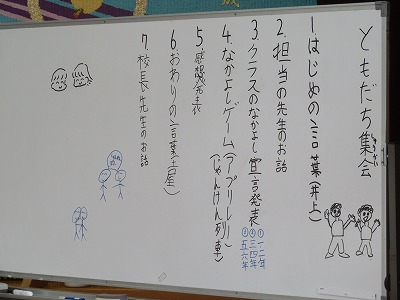 ともだち集会
1. はじめの言葉(井上)
2. 担当の先生のお話
3. クラスのなかよし宣言発表
①一・二年
②三・四年
③五・六年
4. なかよしゲーム(アプリレリ)
(じゃんけん列車)
5. 感想発表
6. おわりの言葉(土屋)
7. 校長先生のお話